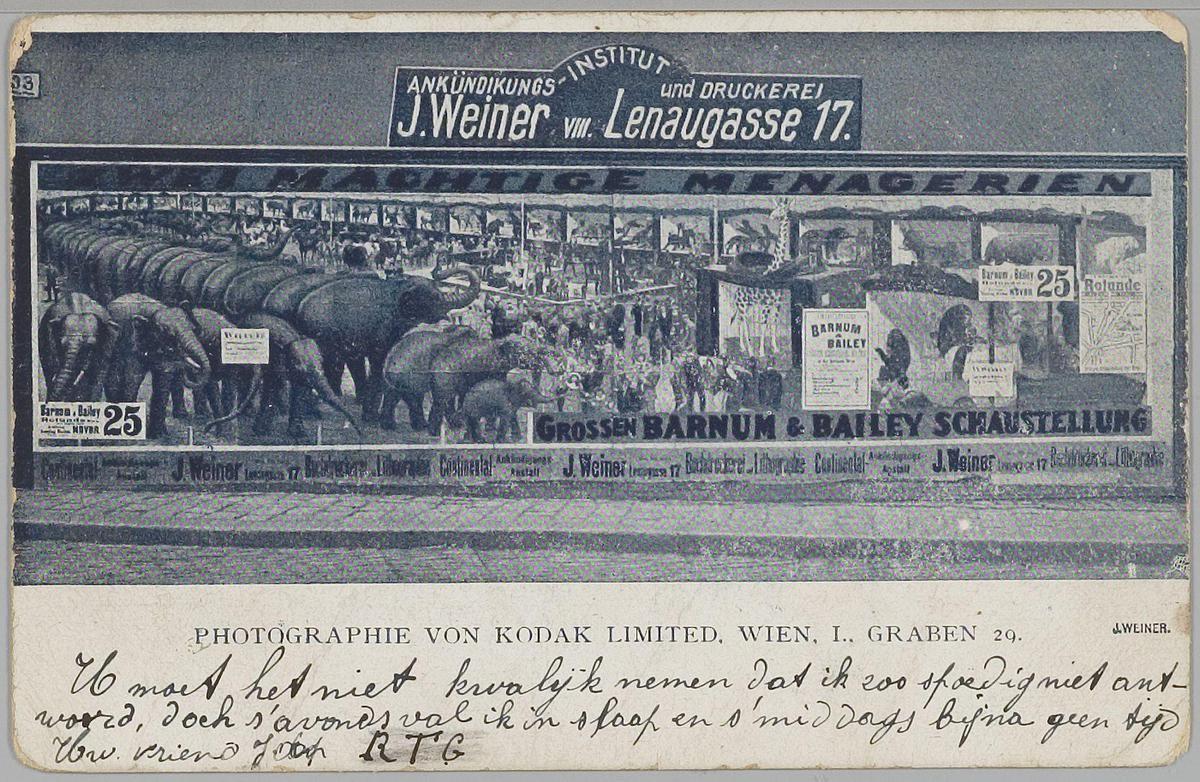 03
INSTITUT
ANKÜNDIKUNGS- und DRUCKEREI
J. Weiner VIII. Lenaugasse 17.
ZWEI MÄCHTIGE MENAGERIEN
Barnum & Bailey
Rotunde
NOVBR 25
Rotunde
BARNUM
&
BAILEY
Barnum & Bailey
Rotunde
NOVBR 25
GROSSEN BARNUM & BAILEY SCHAUSTELLUNG
Continental- Ankündigungs Anstalt J. Weiner Lenaugasse 17 Buchdruckerei und Lithographie Continental- Ankündigungs Anstalt J. Weiner Lenaugasse 17 Buchdruckerei und Lithographie Continental- Ankündigungs Anstalt J. Weiner Lenaugasse 17 Buchdruckerei und Lithographie
PHOTOGRAPHIE VON KODAK LIMITED, WIEN, I., GRABEN 29.
J. WEINER.
U moet het niet kwalijk nemen dat ik zoo spoedig niet ant-
woord, doch s'avonds val ik in slaap en s'middags bijna geen tijd
Uw. vriend RTG